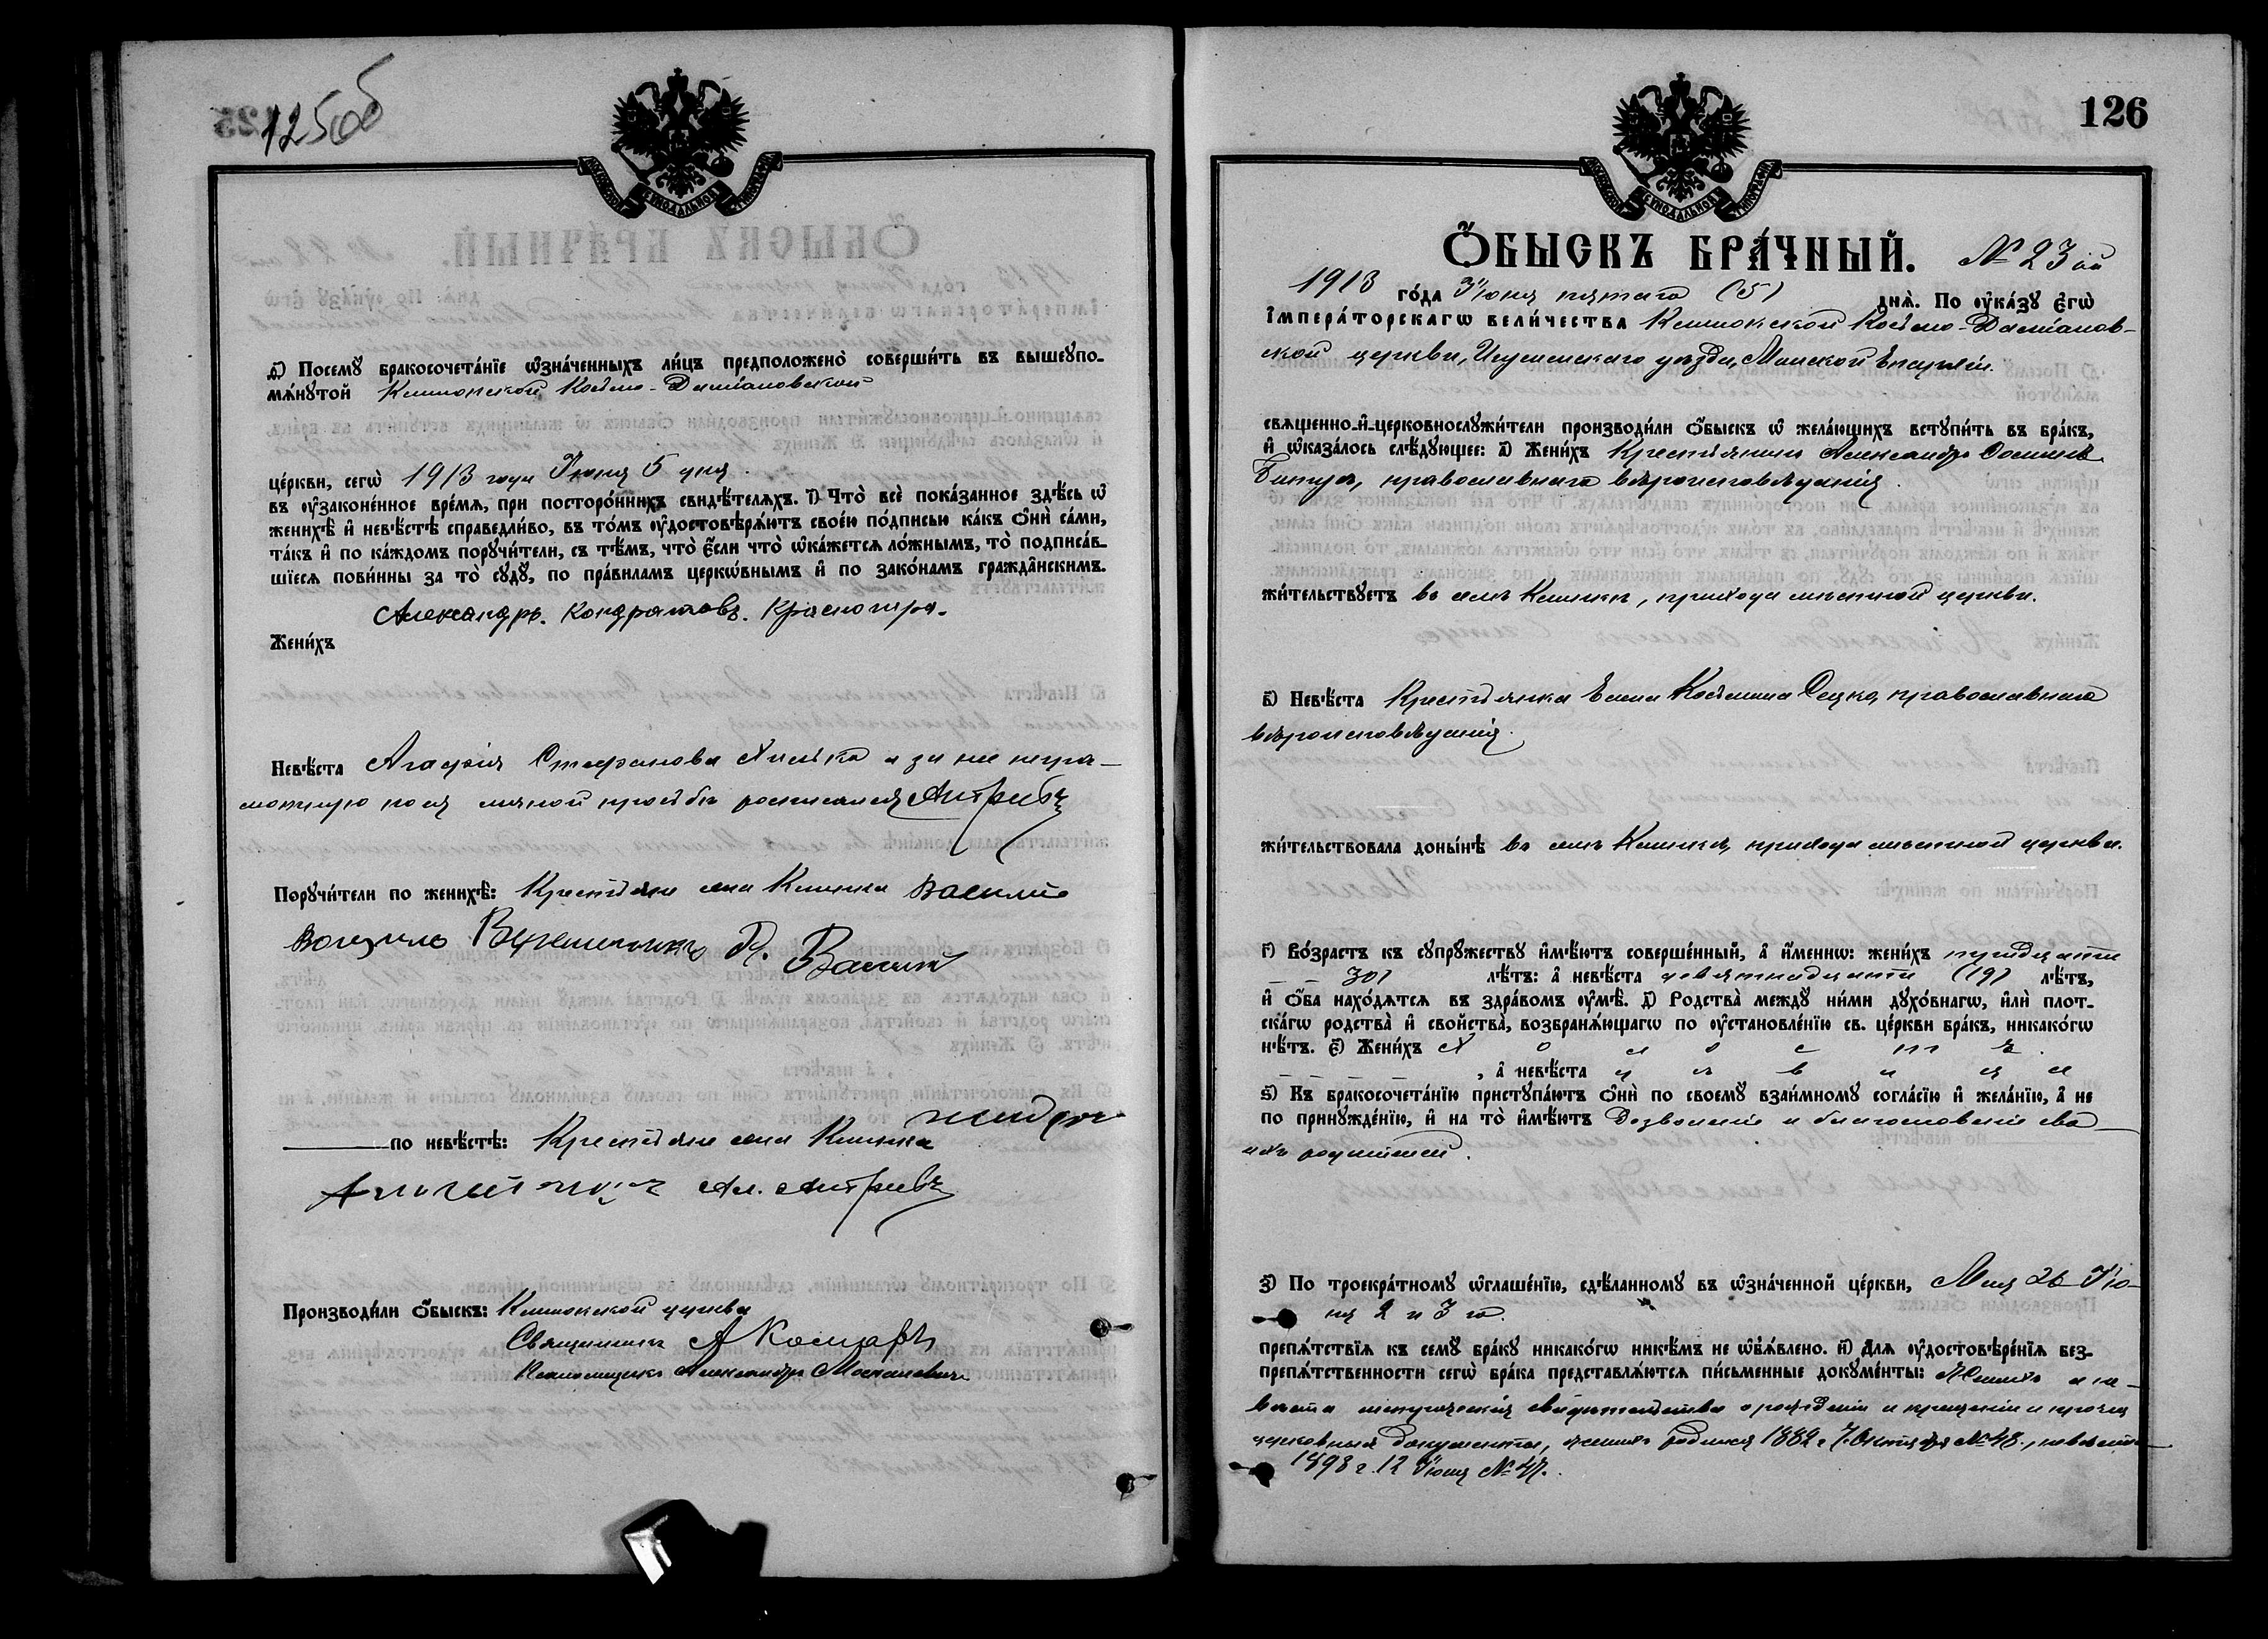 125об
д҃) Посемꙋ бракосочета́нїе ѡ҆зна́ченныхъ ли́цъ предположено̀ соверши́ть въ вышеꙋпо-
мѧ́нꙋтой Клинокской Косьмо-Даміановской
це́ркви, сегѡ̀ 1913 года Іюня 5 дня.
въ ᲂу҆законе́нное вре́мѧ, при посторо́ннихъ свидѣ́телѧхъ. і҃) Что̀ всѐ пока́занное здѣ́сь ѡ҆
женихѣ̀ и҆ невѣ́стѣ справедли́во, въ то́мъ ᲂу҆достовѣрѧ́ютъ свое́ю по́дписью ка́къ ѻ҆нѝ са́ми,
та́къ и҆ по ка́ждомъ порꙋчи́тели, съ тѣ́мъ, что̀ є҆́сли что̀ ѡ҆ка́жетсѧ ло́жнымъ, то̀ подписа́в-
шїесѧ пови́нны за то̀ сꙋдꙋ̀, по пра́виламъ церкѡ́внымъ и҆ по зако́намъ гражда̂нскимъ.
Александръ. Кондратовъ.
Жени́хъ
Невѣ́ста Агафія Стефанова а за нее негра-
мотную по ея личной просьбѣ росписался
Порꙋчи́тели по женихѣ̀: Крестьяне села Клинка Василий
по невѣ́стѣ: Крестьяне села Клинка
Производи́ли ѻ҆́быскъ: Клинокской церкви
Священникъ А
Псаломщикъ Александръ
126
Ѻ҆́БЫСКЪ БРА́ЧНЫЙ. № 23 ій
1913 го́да Іюня пятаго (5) днѧ̀. По ᲂу҆ка́зꙋ є҆гѡ̀
і҆мпера́торскагѡ вели́чества Клинокской Косьмо-Даміанов-
ской церкви, Игуменскаго уѣзда, Минской Епархіи.
свѧще́нно-и҆-церковнослꙋжи́тели производи́ли ѻ҆́быскъ ѡ҆ жела́ющихъ встꙋпи́ть въ бра́къ,
и҆ ѡ҆каза́лось слѣ́дꙋющее: а҃) Жени́хъ Крестьянинъ Александръ Осиповъ
православнаго вѣроисповѣданія.
жи́тельствꙋетъ въ селѣ Клинкѣ, прихода мѣстной церкви.
в҃) Невѣ́ста Крестьянка Елена Косьмина Сецко, православнаго
вѣроисповѣданія.
жи́тельствовала доны́нѣ въ селѣ Клинкѣ, прихода мѣстной церкви.
г҃) Во́зрастъ къ сꙋпрꙋ́жествꙋ и҆мѣ́ютъ соверше́нный, а҆ и҆́меннѡ: жени́хъ тридцати
30) лѣ́тъ: а҆ невѣ́ста девятнадцати (19) лѣ́тъ,
и҆ ѻ҆́ба нахо́дѧтсѧ въ здра́вомъ ᲂу҆мѣ̀. д҃) Родства̀ междꙋ̀ ни́ми дꙋхо́внагѡ, и҆лѝ плот-
ска́гѡ родства̀ и҆ сво́йства̀, возбранѧ́ющагѡ по ᲂу҆становле́нїю св. це́ркви бра́къ, никако́гѡ
нѣ́тъ. є҃) Жени́хъ х о л о с т ъ.
, а҆ невѣ́ста д ѣ в и ц а
ѕ҃) Къ бракосочета́нїю пристꙋпа́ютъ ѻ҆нѝ по своемꙋ̀ взаи́мномꙋ согла́сїю и҆ жела́нїю, а҆ не
по принꙋжде́нїю, и҆ на то̀ и҆мѣ́ютъ Дозволеніе и благословеніе сво-
ихъ родителей.
з҃) По троекра́тномꙋ ѡ҆глаше́нїю, сдѣ́ланномꙋ въ ѡ҆зна́ченной це́ркви, Мая 26 Ію-
ня 2 и 3 го.
препѧ́тствїѧ къ семꙋ̀ бра́кꙋ никако́гѡ никѣ́мъ не ѡ҆б̾ѧ́влено. и҃) Длѧ ᲂу҆достовѣре́нїѧ без-
препѧ́тственности сегѡ̀ бра́ка представлѧ́ютсѧ пи́сьменные докꙋме́нты: Жениха и не-
вѣсты метрическія свидѣтельства о рожденіи и крещеніи и прочія
церковныя документы, женихъ родился 1882 г. 7. Октября № 48., невѣста
1893 г. 12 Іюня № 47.